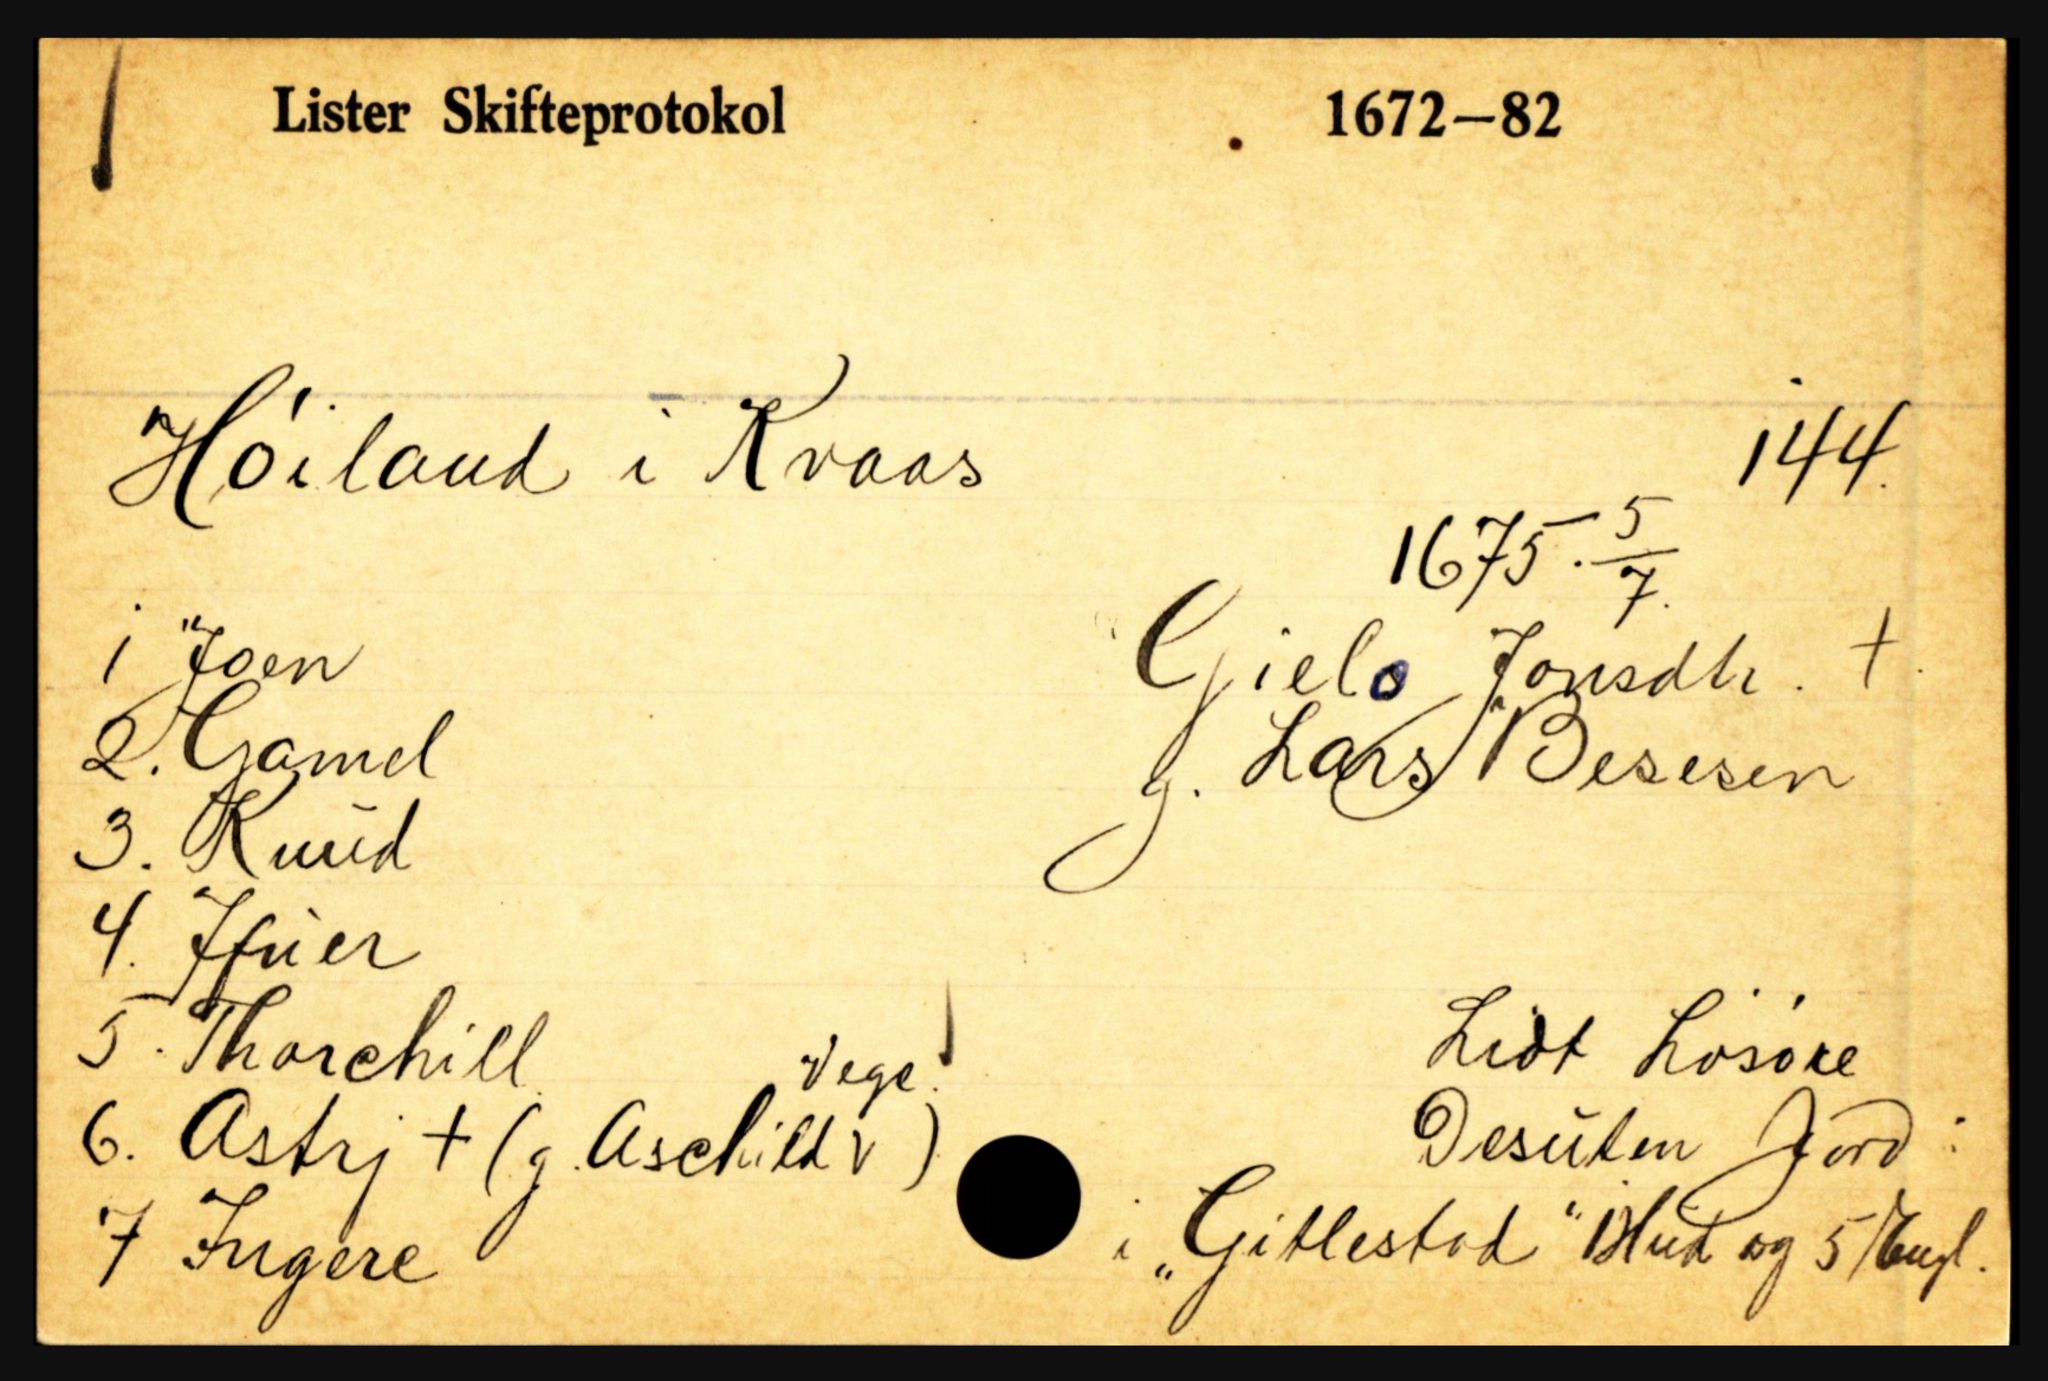 Lister Skifteprotokol 1672–82
Höiland i Kvaas 144.
1675. 5/7.
Giele Jonsdtr. +.
g. Lars Besesen
1 Joen
2. Gamel
3. Knud
4. Ifuer
5. Thorchill
6. Astrj + (g. Aschild Vege v)
7 Ingere
Lidt Lösöre
Desüten Jord:
i „Gitlestad“ 1 Hud og 5 Engl.